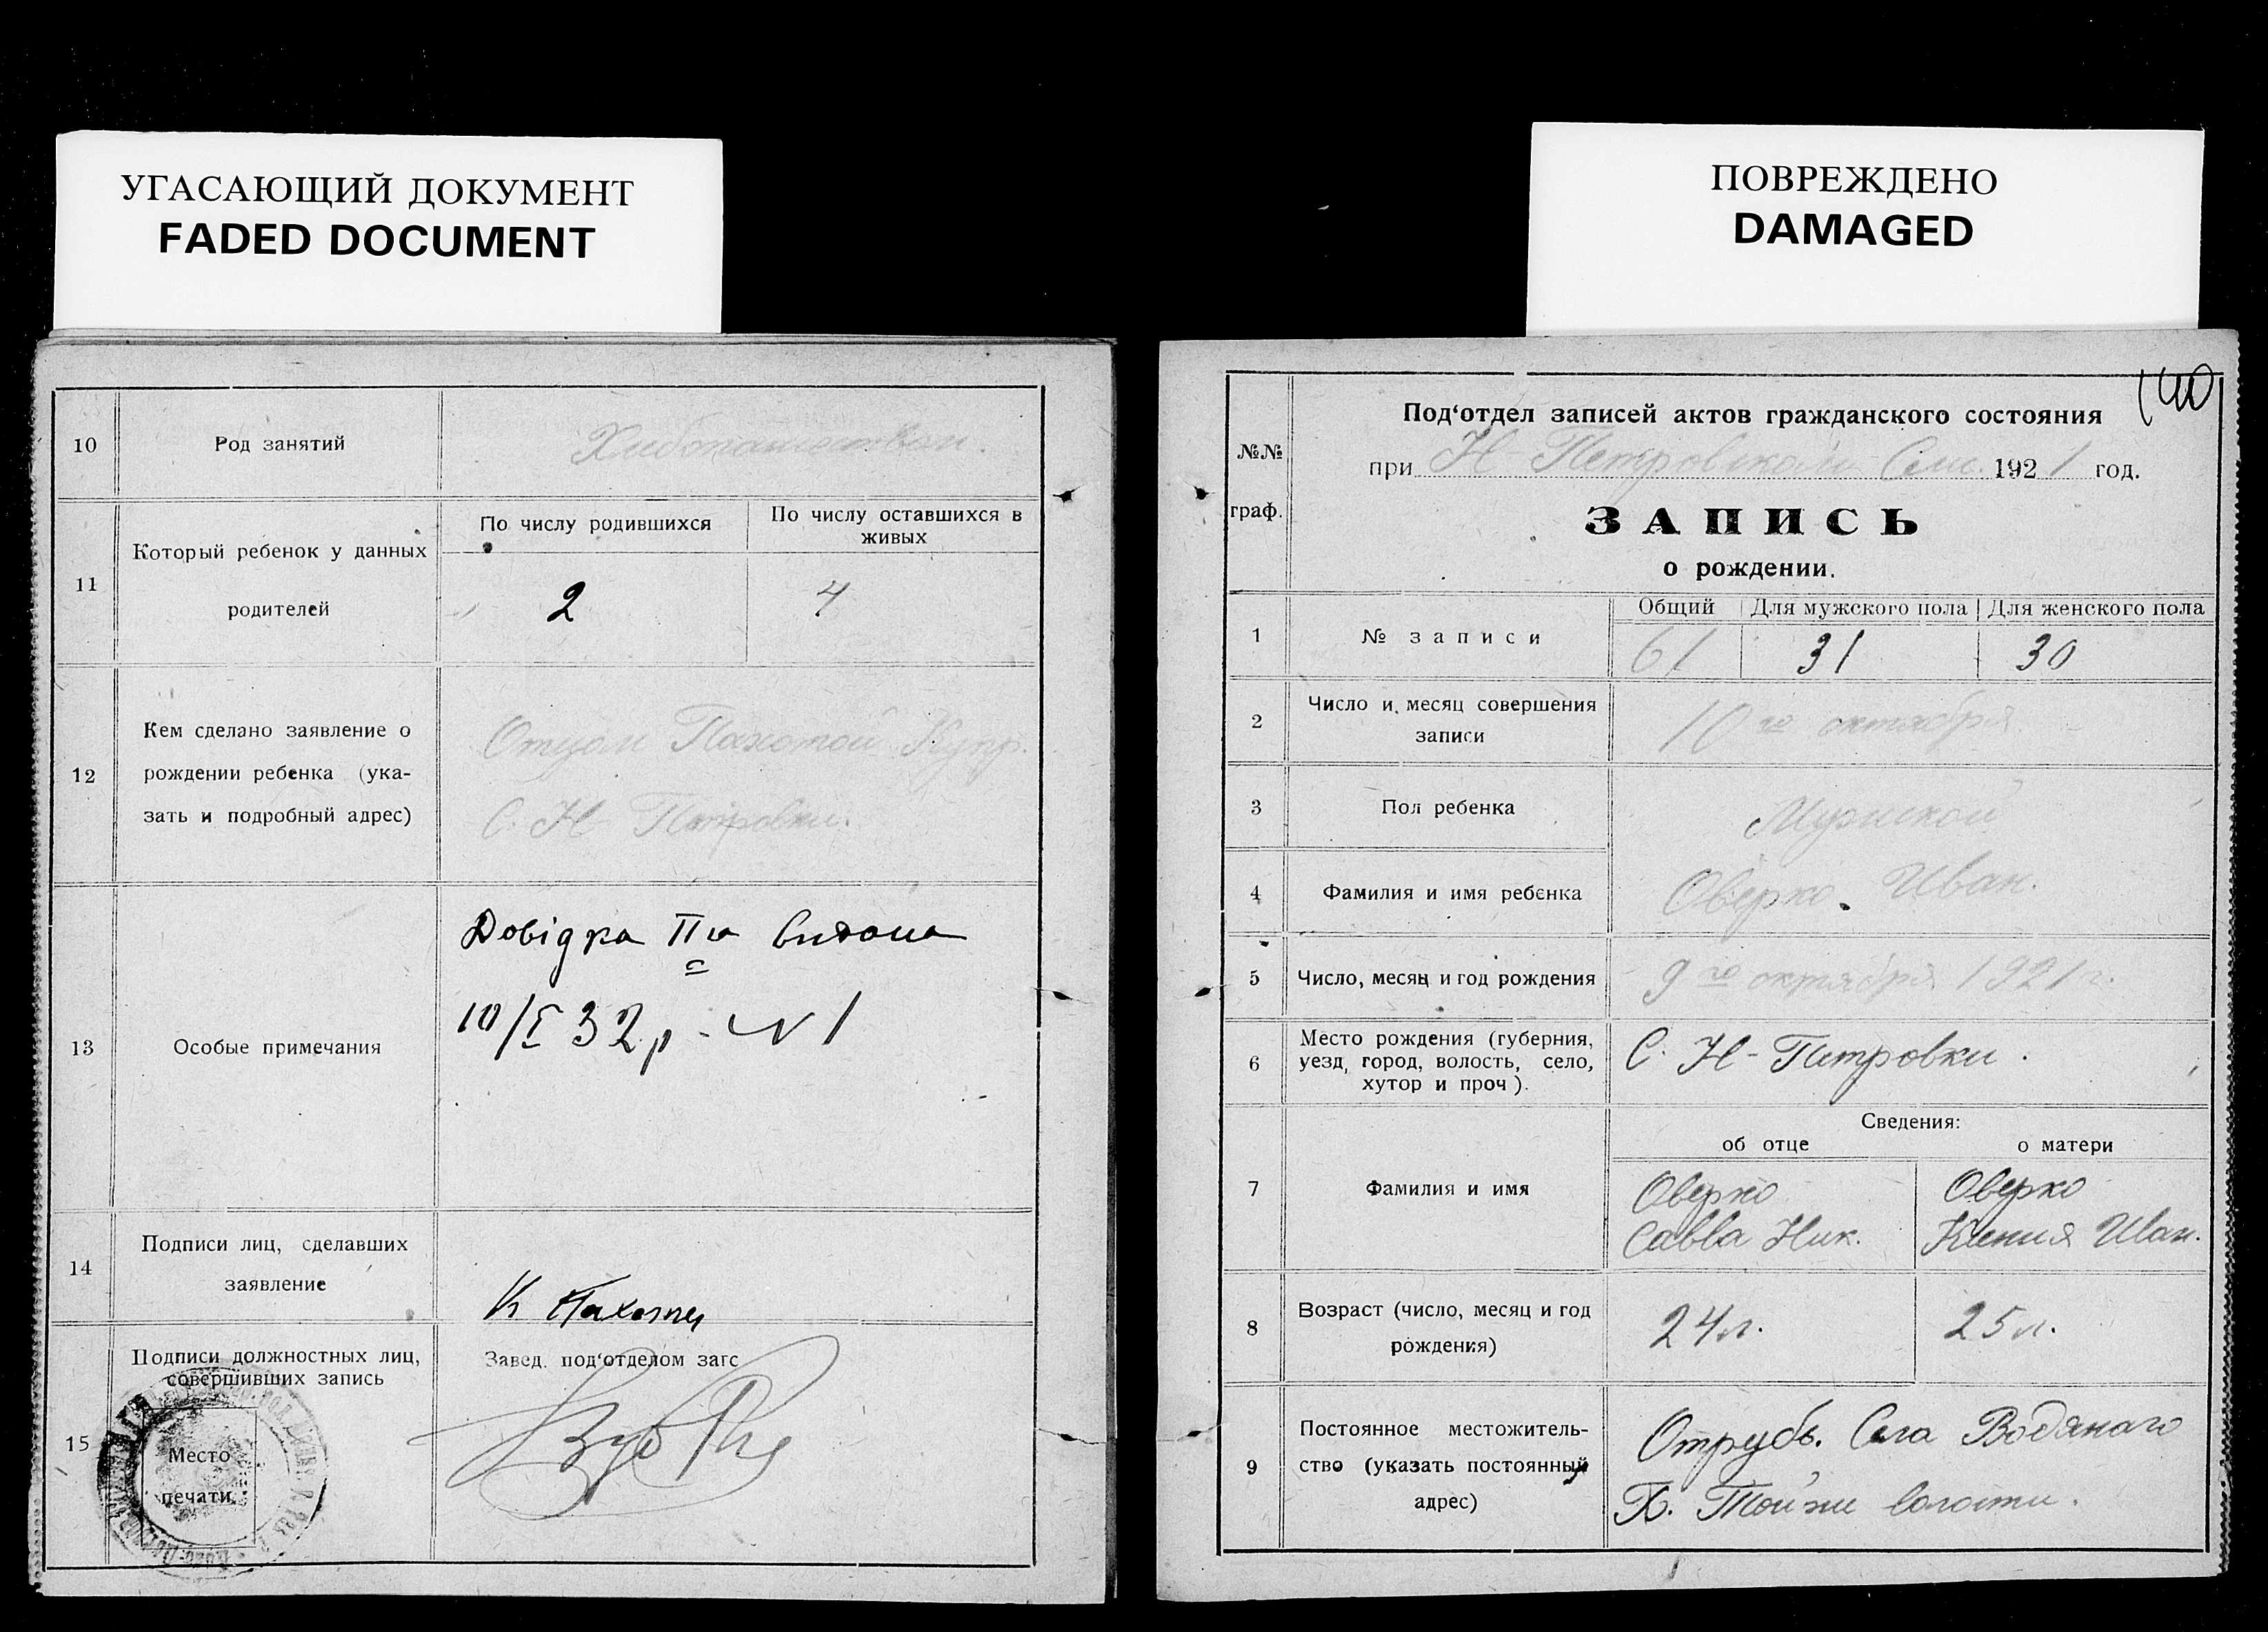 УГАСАЮЩИЙ ДОКУМЕНТ
FADED DOCUMENT
10
Род занятий
11
Который ребенок у данных
родителей
По числу родившихся
По числу оставшихся в
живых
2
4
12
Кем сделано заявление о
рождении ребенка (ука-
зать и подробный адрес)
Отцом Пахотой Купр.
С. Н Петровки.
13
Особые примечания
Довідка видана
10/I 32 р - N 1
14
Подписи лиц, сделавших
заявление
К Пахоты
15
Подписи должностных лиц,
совершивших запись
Место
печати.
Завед. под‘отделом загс
ПОВРЕЖДЕНО
DAMAGED
140
№№
граф.
Под‘отдел записей актов гражданского состояния
при Н-Петровском 1921 год.
ЗАПИСЬ
о рождении.
1
№ записи
Общий
Для мужского пола
Для женского пола
61
31
30
2
Число и месяц совершения
записи
10 го октября
3
Пол ребенка
Мужской
4
Фамилия и имя ребенка
Оверко. Иван.
5
Число, месяц и год рождения
9 го октября 1921 г.
6
Место рождения (губерния,
уезд, город, волость, село,
хутор и проч).
С. Н-Петровки.
Сведения:
об отце
о матери
7
Фамилия и имя
Оверко
Савва Ник.
Оверко
Ксения Иван.
8
Возраст (число, месяц и год
рождения)
24 л.
25 л.
9
Постоянное местожитель-
ство (указать постоянный
адрес)
Отрубь. Села Водянаго
Х. Той же волости.